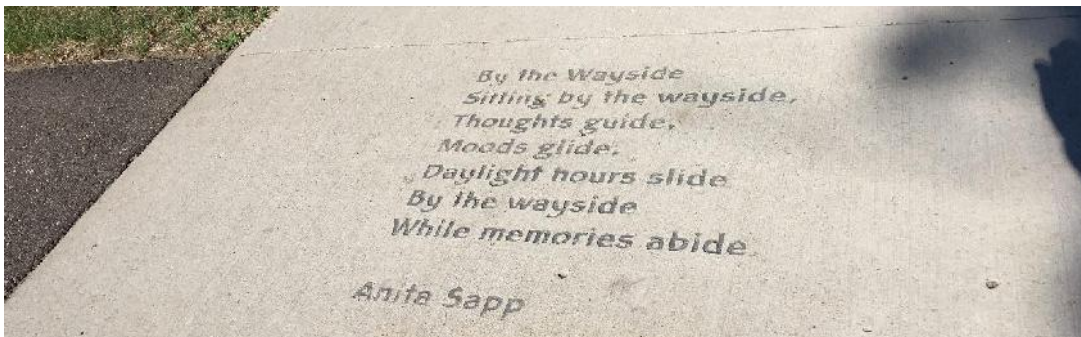 By the Wayside
Sitting by the wayside,
Thoughts guide,
Moods glide,
Daylight hours slide
By the wayside
While memories abide
Anita Sapp